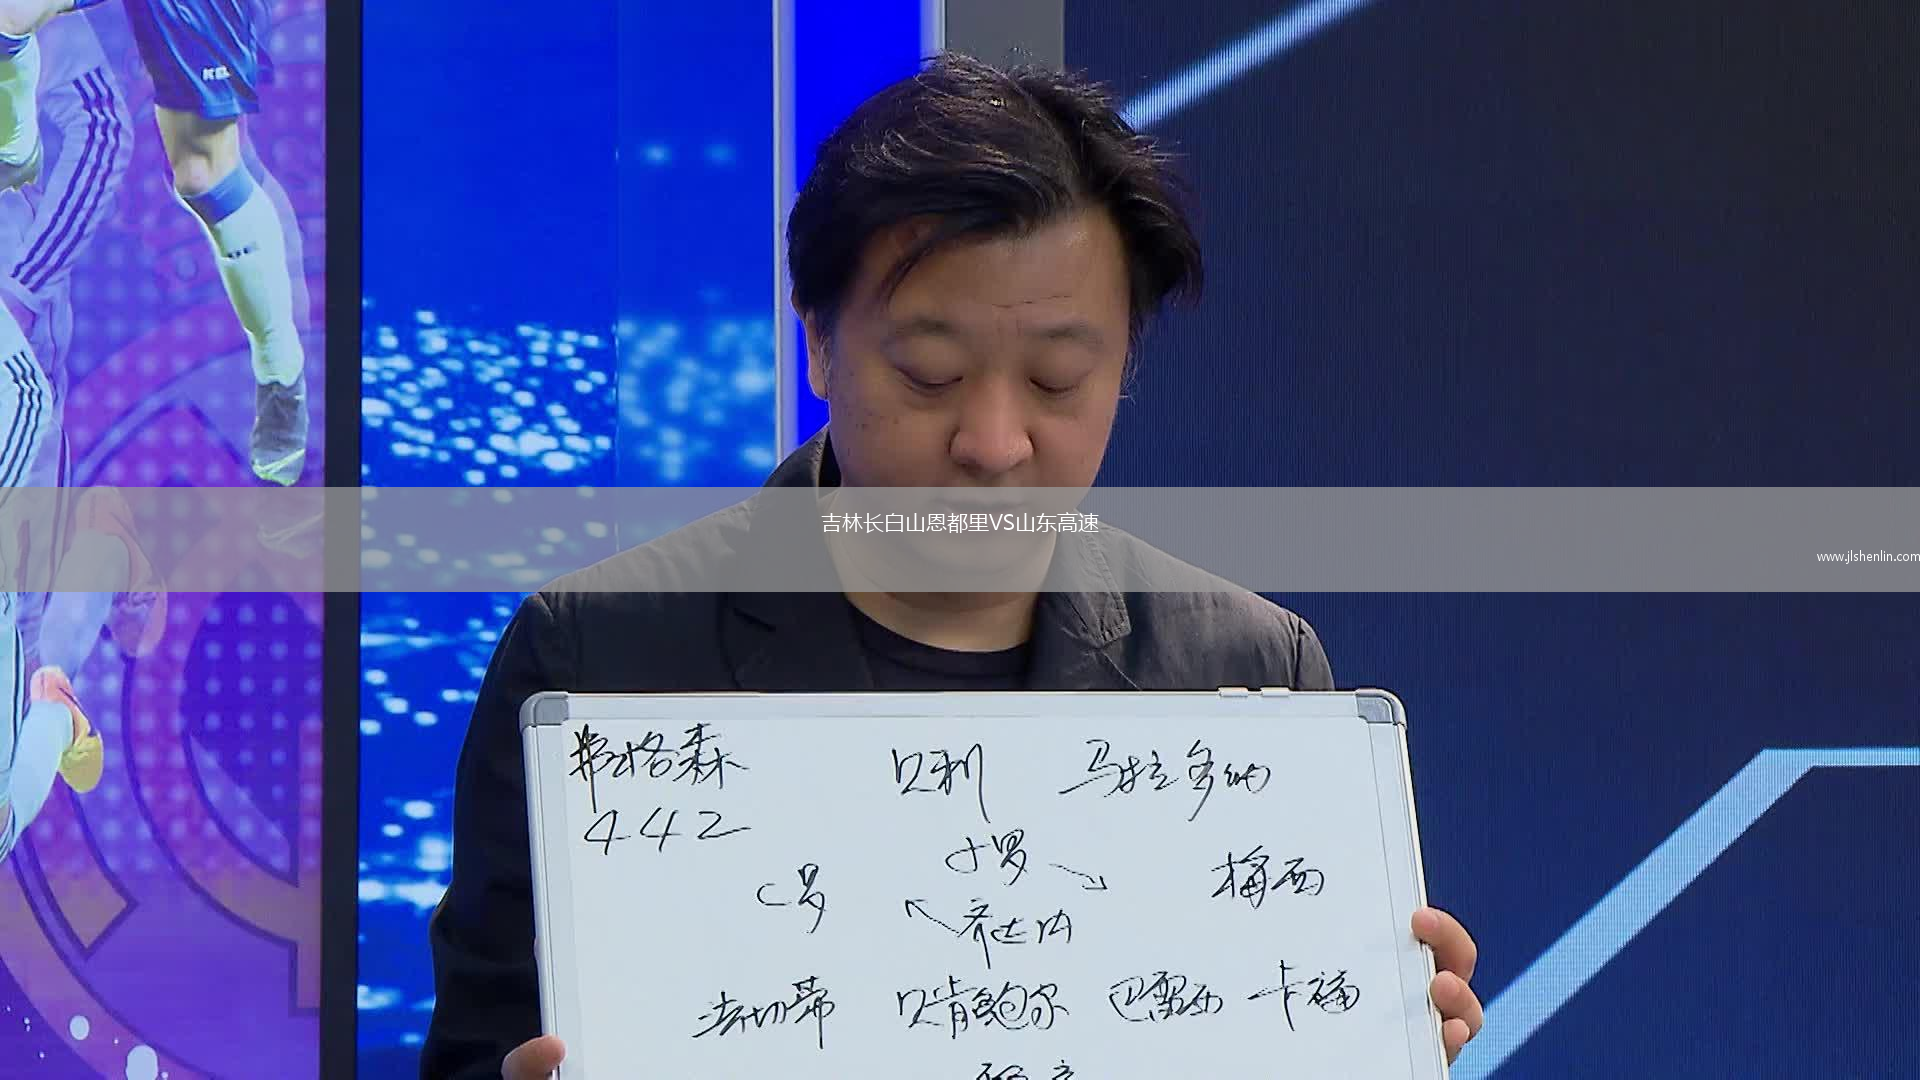 吉林长白山恩都里VS山东高速
www.jlshenlin.com
弗格森 贝利 马拉多纳
442
小罗
C罗 梅西
齐达内
法切蒂 贝肯鲍尔 巴雷西 卡福